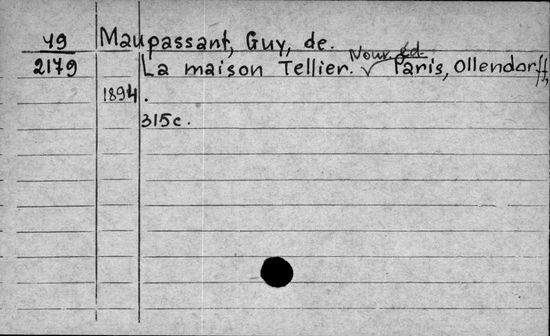 49 Maupassant, Guy, de.
2179 La maison Tellier. Nouv. éd. Paris, Ollendorff,
1894.
315c.